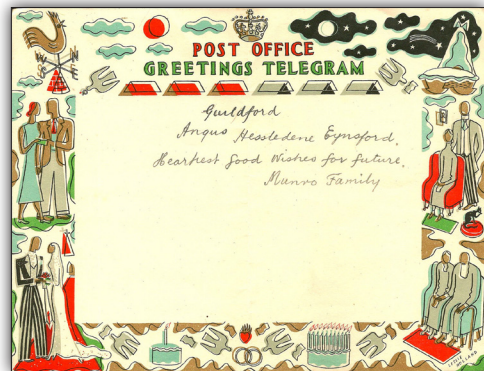 POST OFFICE
GREETINGS TELEGRAM
Guildford
Angus Hessledene Eynsford.
Heartiest Good Wishes for future.
Munro Family
LESLIE
HOLLAND